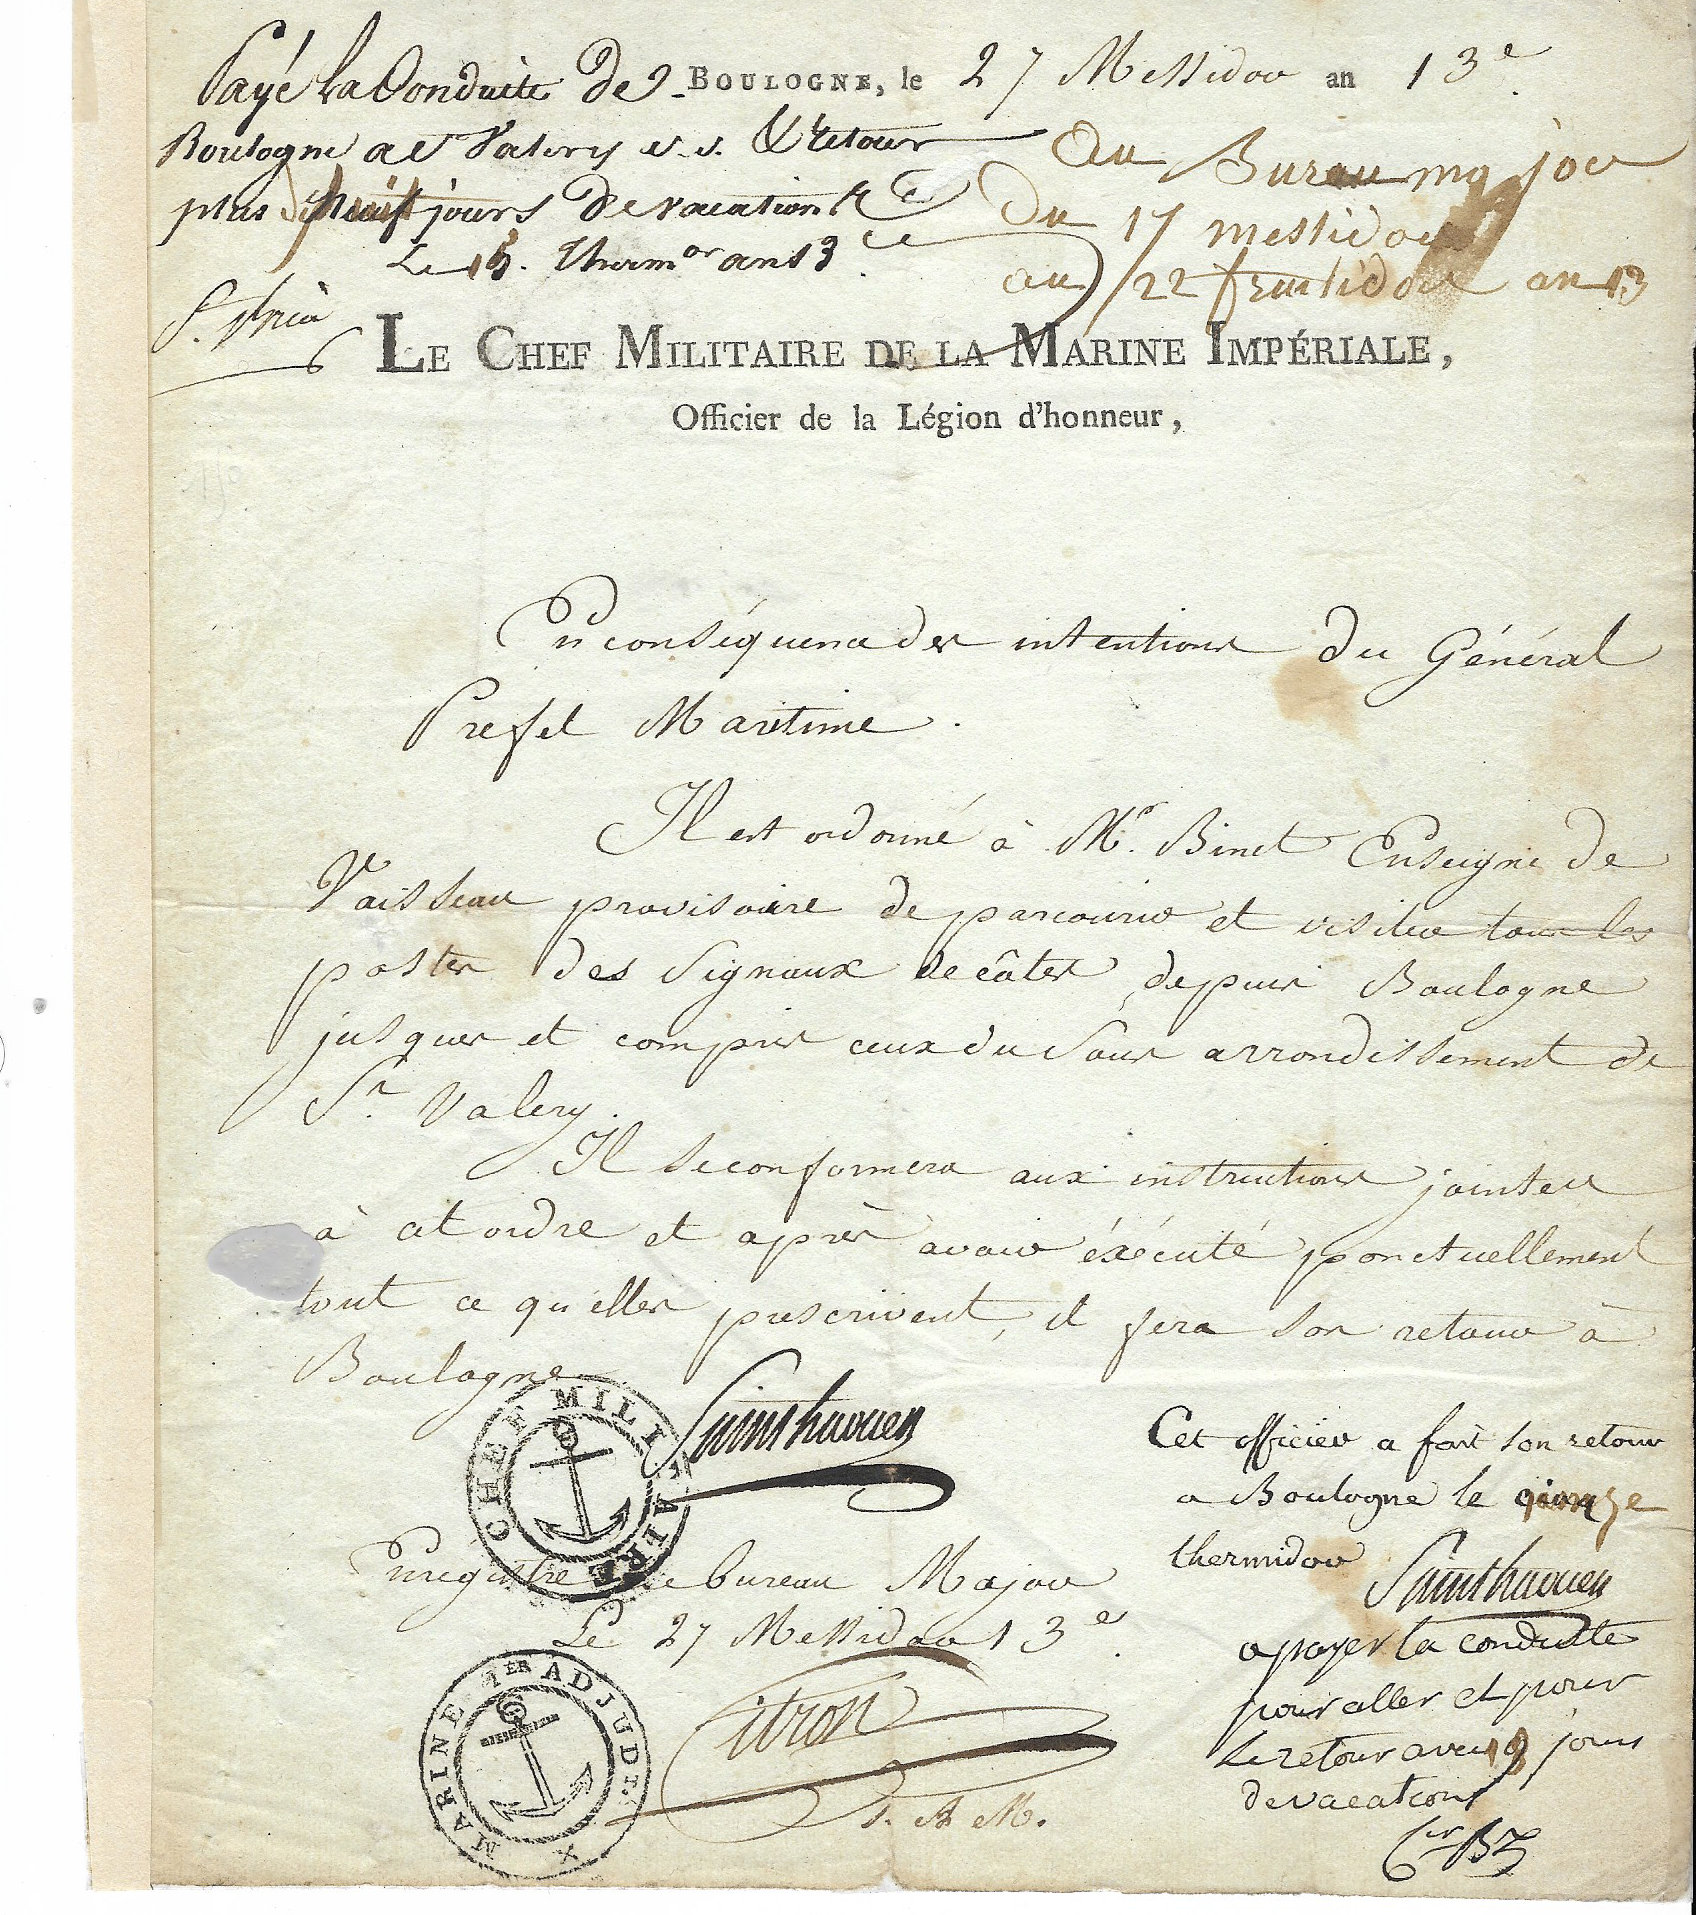 Payé la Conduite de
Boulogne a St Valery s. s. & retour
plus jours de vacations
Le 15. Therm.or an 13
BOULOGNE, le 27 Messidor an 13e.
Au Bureau major
Du 17 messidor
au 22 fructidor an 13
LE CHEF MILITAIRE DE LA MARINE IMPÉRIALE,
Officier de la Légion d'honneur,
En conséquence des intentions du Général
Prefet Maritime.
Il est ordonné à Mr. Binet Enseigne de
Vaisseau provisoire de parcourir et visiter tous les
postes des Signaux de côtes, depuis Boulogne
jusques et compris ceux du Sous arrondissement de
St. Valery.
Il se conformera aux instructions jointes
à cet ordre et après avoir éxécuté ponctuellement
tout ce qu'elles prescrivent, il fera son retour à
Boulogne
CHEF MILITAIRE
Sainthaouen
Enregistré au bureau Major
Le 27 Messidor 13e.
MARINE 1ER ADJUDT.
itron
Cet officier a fait son retour
a Boulogne le quinze
thermidor
Sainthaouen
a payer la conduitte
pour aller et pour
le retour avec 19 jours
de vacations